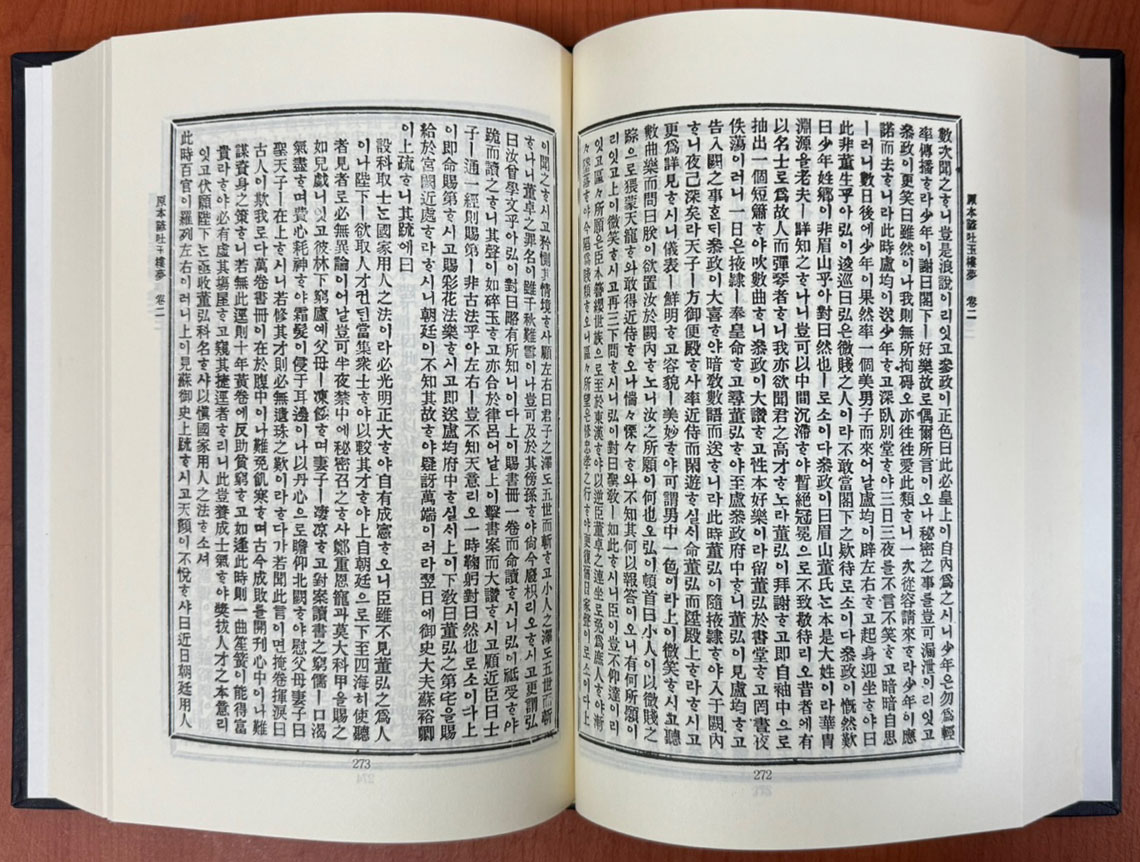 原本諺吐玉樓夢 卷二
數次聞之ᄒᆞ니豈是浪說이리잇고叅政이正色曰此必皇上이自內爲之시니少年은勿爲輕
率傳播ᄒᆞ라少年이謝曰閣下ㅣ好樂故로偶爾所言이오나秘密之事를豈可漏泄이리잇고
叅政이更笑曰雖然이나我則無所拘碍오亦往往愛此類ᄒᆞ니一次從容請來ᄒᆞ라少年이應
諾而去ᄒᆞ니라此時盧均이送少年ᄒᆞ고深臥別堂ᄒᆞ야三日三夜를不言不笑ᄒᆞ고暗自思
ㅣ러니數日後에少年이果然率一個美男子而來어날盧均이辟左右ᄒᆞ고起身迎坐ᄒᆞ야曰
此非董生乎아弘이逡巡曰弘은微賤之人이라不敢當閣下之欵待로소이다叅政이慨然歎
曰少年姓鄕이非眉山乎아對曰然也ㅣ로소이다叅政이曰眉山董氏는本是大姓이라華冑
淵源을老夫ㅣ詳知之ᄒᆞ나니豈可以中間沉滯ᄒᆞ야暫絕冠冕으로不致敬待리오昔者에有
以名士로爲故人而彈琴者ᄒᆞ니我亦欲聞君之高才ᄒᆞ노라董弘이拜謝ᄒᆞ고即自紬中으로
抽出一個短簫ᄒᆞ야吹數曲ᄒᆞ니叅政이大讚ᄒᆞ고性本好樂이라留董弘於書堂ᄒᆞ고罔晝夜
佚蕩이러니一日은掖隷ㅣ奉皇命ᄒᆞ고尋董弘ᄒᆞ야至盧叅政府中ᄒᆞ니董弘이見盧均ᄒᆞ고
告入闕之事ᄒᆞᆫ되叅政이大喜ᄒᆞ야暗敎數語而送ᄒᆞ니라此時董弘이隨掖隷ᄒᆞ야入于闕內
ᄒᆞ니夜已深矣라天子ㅣ方御便殿ᄒᆞ사率近侍而閑遊ᄒᆞ실시命董弘而陞殿ᄒᆞ라ᄒᆞ시고
更爲詳見ᄒᆞ시니儀表ㅣ鮮明ᄒᆞ고容貌ㅣ美妙ᄒᆞ야可謂男中一色이라上이微笑ᄒᆞ시고聽
數曲樂而問曰朕이欲置汝於闕內ᄒᆞ노니汝之所願이何也오弘이頓首曰小人이以微賤之
踪으로猥蒙天寵ᄒᆞ와敢得近侍ᄒᆞ오나惴々慄々ᄒᆞ와不知其何以報答이오니有何所願이
리잇고上이微笑ᄒᆞ시고再三下問ᄒᆞ시니弘이對曰聖敎ㅣ如此ᄒᆞ시니臣이豈不仰達이리
잇고區々所願은臣本簪纓世族으로至於東漢ᄒᆞ야以逆臣董卓之連坐로兎爲庶人ᄒᆞ야漸
272
原本諺吐玉樓夢 卷二
이聞之ᄒᆞ시고矜惻其情境ᄒᆞ사顧左右曰君子之澤도五世而斬ᄒᆞ고小人之澤五世而斬
ᄒᆞ나니董卓之罪名이雖千秋難雪이나豈可及於其傍孫ᄒᆞ야尙今廢枳리오ᄒᆞ시고更謂弘
曰汝曾學文乎아弘이對曰略有所知니이다上이賜書冊一卷而命讀ᄒᆞ시니弘이祗受ᄒᆞ야
跪而讀之ᄒᆞ니其聲이如碎玉ᄒᆞ고亦合於律呂어날上이擊書案而大讚ᄒᆞ시고顧近臣曰士
子ㅣ一通一經則賜第ㅣ非古法乎아左右ㅣ不知天意리오一時鞠躬對曰然也로소이다上
이即命賜第ᄒᆞ시고賜彩花法樂ᄒᆞ시고即送盧均府中ᄒᆞ실시上이下敎曰董弘之第宅을賜
給於宮闕近處ᄒᆞ라ᄒᆞ시니朝廷이不知其故ᄒᆞ야疑訝萬端이러라翌日에御史大夫蘇裕卿
이上疏ᄒᆞ니其疏에曰
設科取士는國家用人之法이라必光明正大ᄒᆞ야自有成憲ᄒᆞ오니臣雖不見董弘之爲人
이나陛下ㅣ欲取人才신ᄃᆡᆫ當集衆士ᄒᆞ야以較其才ᄒᆞ야上自朝廷으로下至四海히使聽
者見者로必無異論이어날豈可半夜禁中에秘密召之ᄒᆞ사鄭重恩寵과莫大科甲을賜之
如兒戱니잇고彼林下窮廬에父母ㅣ凍餒ᄒᆞ며妻子ㅣ凄凉ᄒᆞ고對案讀書之窮儒ㅣ口渴
氣盡ᄒᆞ며費心耗神ᄒᆞ야霜髮이侵于耳邊이나以丹心으로瞻仰北闕ᄒᆞ야慰父母妻子曰
聖天子ㅣ在上ᄒᆞ시니若修其才則必無遺珠之歎이라ᄒᆞ다가若聞此言이면掩卷揮淚曰
古人이欺我로다萬卷書冊이在於腹中이나難兎飢寒ᄒᆞ며古今成敗를開刊心中이나難
謀資身之策ᄒᆞ니若無此逕則十年黃卷에反助貧窮ᄒᆞ고如逢此時則一曲笙簧이能得富
貴라ᄒᆞ야必有虛其場屋ᄒᆞ고窺其捷逕者ᄒᆞ리니此豈養成士氣ᄒᆞ야獎拔人才之本意리
잇고伏願陛下는亟收董弘科名ᄒᆞ샤以愼國家用人之法ᄒᆞ소셔
此時百官이羅列左右이러니上이見蘇御史上疏ᄒᆞ시고天顏이不悅ᄒᆞ샤曰近日朝廷用人
273